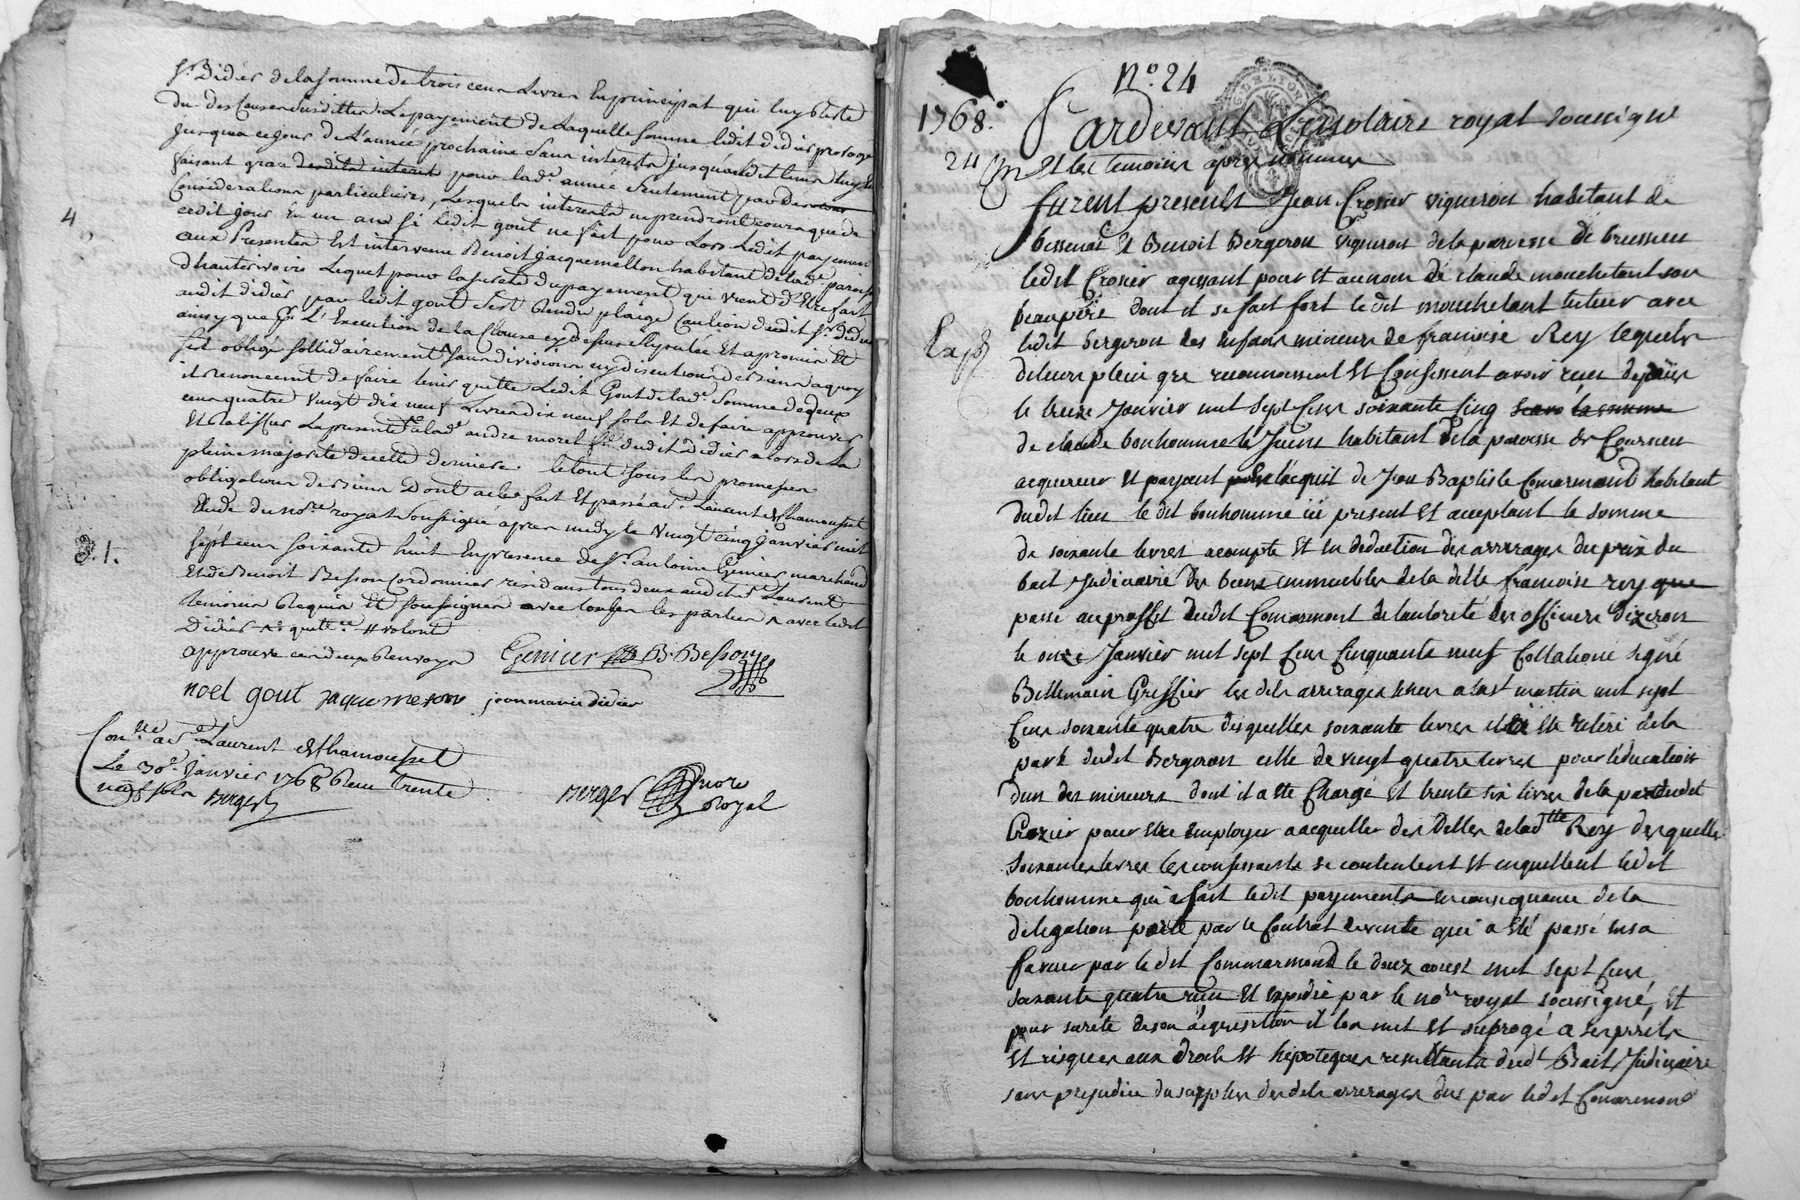 Sr. Didier de la somme de trois cens Livres En principal qui luy Reste
du des Causes susdittes Le payement de Laquelle somme ledit didier proroge
jusqua ce jour de L'année prochaine sans interests jusqu'audit tems luy
faisant grace dudit interest pour lad. année seulement par des
Considerations particulieres, Lesquels interests reprendront cours que de
cedit jour En un an si Ledit gout ne fait pour Lors Ledit payement
aux Presentes Est intervenu Benoit jacquemetton habitant de lade. paroisse
dhauterivoire Lequel pour la sureté du payement qui vient d'Etre fait
audit didier par ledit gout s'est Rendu plaige Caution dudit Sr. didier
ainsy que pr. L'Execution de la Clause cy dessus stipulée Et a promis Et
s'est obligé sollidairement sans division ny discution de Biens a quoy
il renoncent de faire tenir quitte Ledit Gout de lad. Somme de deux
cens quatre vingt dix neuf Livres dix neuf sols Et de faire approuver
Et Ratiffier La presente a lad. andre morel fe. dudit Didier alors de La
pleine majorité de cette derniere. Le tout sous les promesses
obligations de Biens Dont acte fait Et passé a St. Laurent de Chamousset
Etude du nore. royal soussigné apres midy le vingt cinq janvier mil
sept cens soixante huit En presence de Sr. antoine Grenier marchand
Et de Benoit Besson Cordonnier residants tous deux aud. St. Laurent
temoins Requis Et soussignes avec toutes les parties avec ledit
Didier
approuvé ces deux Renvoys Grenier B. Besson
noel gout jaquemeton jean marie didier
4
8. 1.
Conlé. a St. Laurent de Chamousset
Le 30e. Janvier 1768 Reçu trente
neuf sols Berger
Berger nore Royal
No. 24
1768.
24 Pardevant Le notaire royal soussigné
Et les temoins apres nommes
furent presents Jean Crosier vigneron habitant de
bessenai Et Benoit Bergeron vigneron de la paroisse de brussieu
ledit Crosier agissant pour Et au nom de claude mouchetant son
beaupere dont il se fait fort le dit mouchetant tuteur avec
ledit bergeron des Enfans mineurs de francoise Rey lequels
de leur plein gre reconnoissent Et Confessent avoir reçu depuis
Exp.
le treize Janvier mil sept Cens soixante Cinq la somme
de claude bonhomme le Jeune habitant de la paroisse de Courzieu
acquereur Et payant pour l'acquit de Jean Baptiste Comarmond habitant
dudit lieu le dit bonhomme ici present Et acceptant la somme
de soixante livres acompte Et En deduction des arrerages du prix du
bail Judiciaire des biens immeubles de la ditte francoise rey que
passé au proffit dudit Comarmont de lautorité des officiers dizeron
le onze Janvier mil sept Cens Cinquante neuf Collationé signé
Billemain Greffier les dits arrerages echus a la st martin mil sept
Cens soixante quatre desquelles soixante livres il a Eté retiré de la
part dudit Bergeron celle de vingt quatre livres pour l'education
dun des mineurs dont il a ete Chargé Et trente six livres de la part dudit
Crozier pour etre employer a acquitter des Dettes de ladtte Rey desquelles
soixante livres les confessants se contentent Et enquittent ledit
bonhomme qui a fait ledit payement en consequence de la
delegation porté par le Contrat de vente qui a Eté passé en sa
faveur par le dit Commarmond le douz aoust mil sept Cens
soixante quatre reçu Et expedié par le nore royal soussigné, Et
pour sureté de son acquisition il l'on mit Et subrogé a ses perils
Et risques aux droits Et hipoteques resultants dudt Bail Judiciaire
sans prejudice du surplus desdits arrerages dus par ledit Comarmond